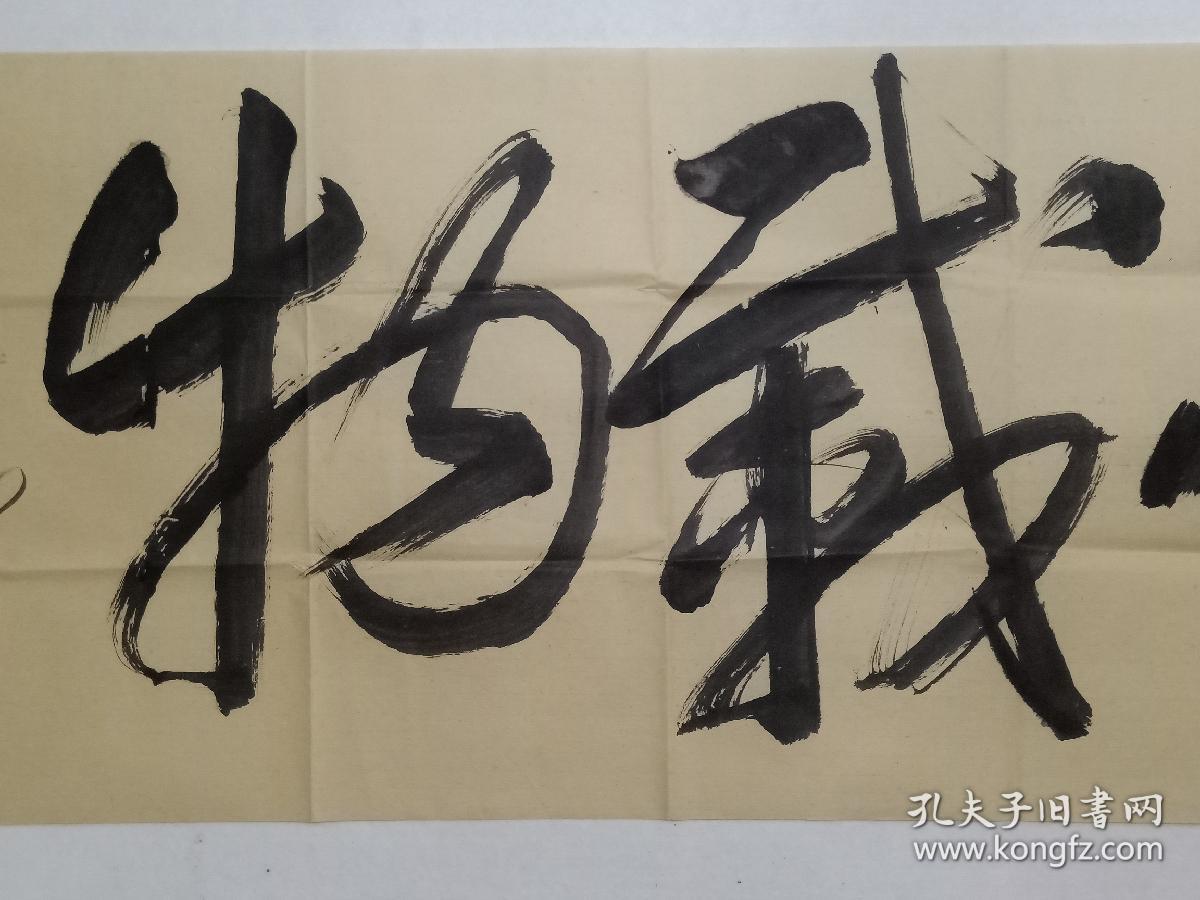 載物
孔夫子旧书网
www.kongfz.com